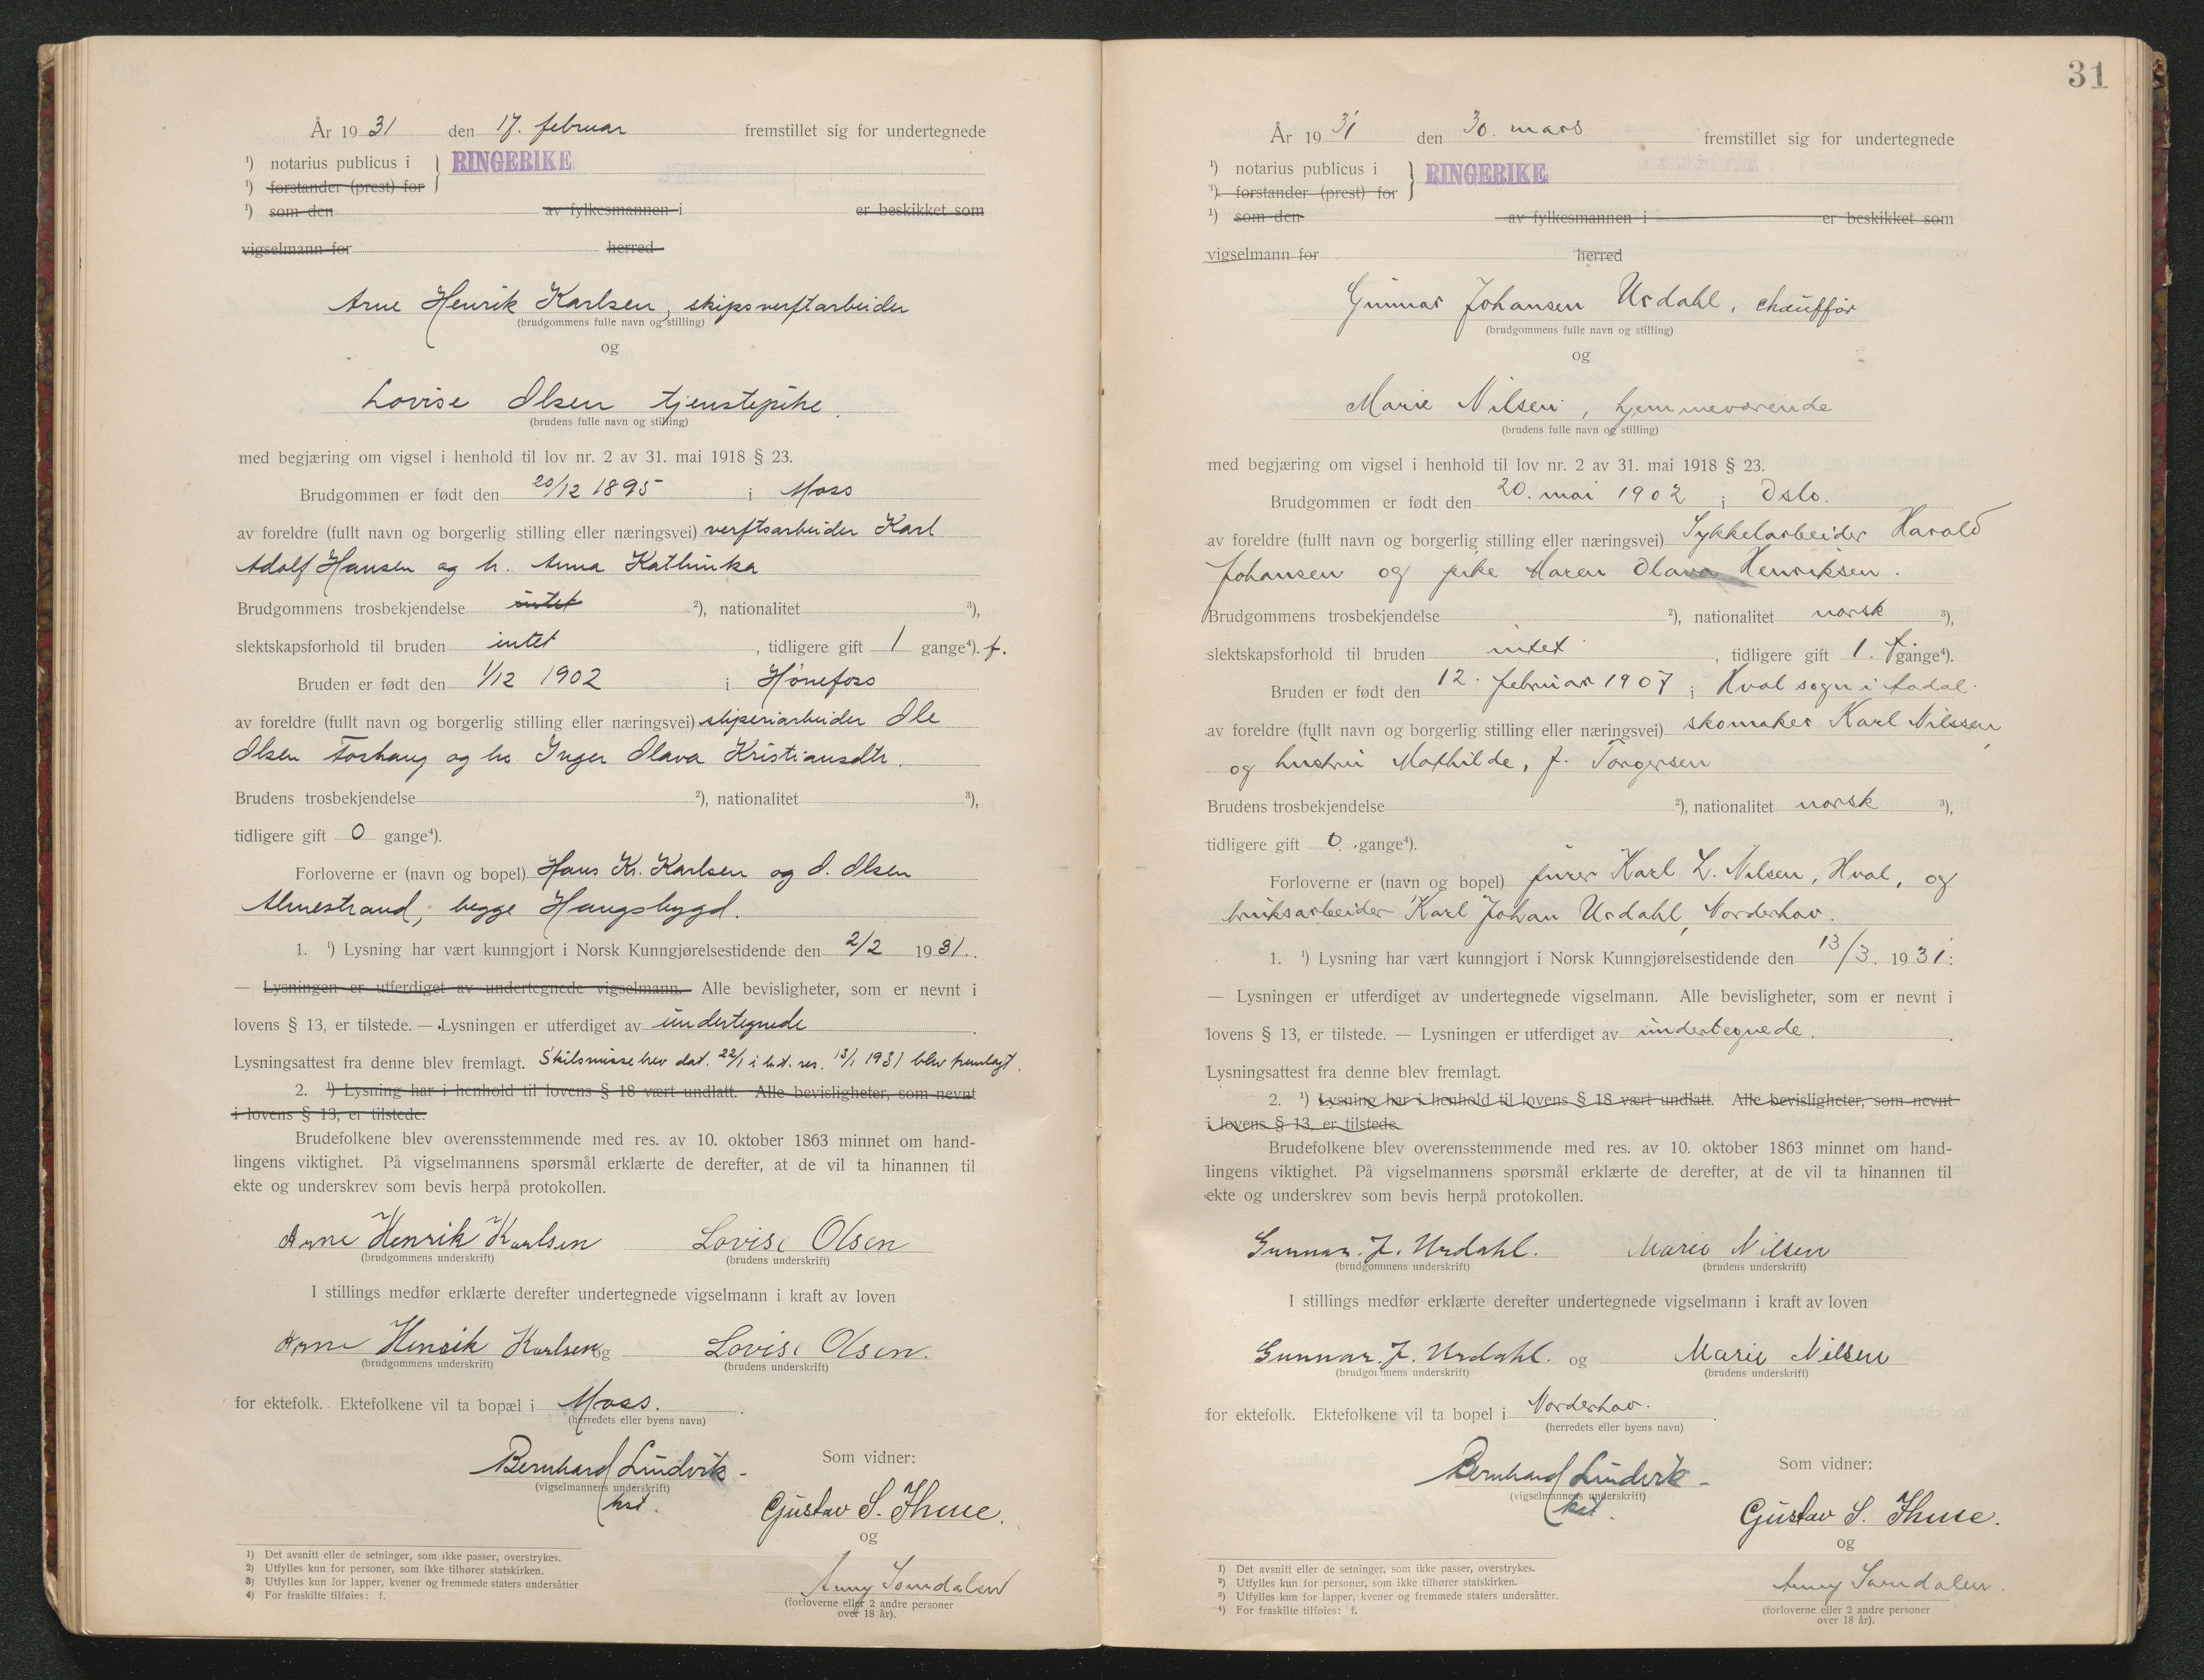 År 1931 den 17. februar fremstillet sig for undertegnede
¹) notarius publicus i } RINGERIKE
¹) forstander (prest) for
¹) som den av fylkesmannen i er beskikket som
vigselmann for herred
Arne Henrik Karlsen, skipsverftarbeider
(brudgommens fulle navn og stilling)
og
Lovise Olsen tjenstepike.
(brudens fulle navn og stilling)
med begjæring om vigsel i henhold til lov nr. 2 av 31. mai 1918 § 23.
Brudgommen er født den 20/12 1895 i Moss
av foreldre (fullt navn og borgerlig stilling eller næringsvei) verftsarbeider Karl
Adolf Hansen og h. Anna Kathinka
Brudgommens trosbekjendelse intet ²), nationalitet ³),
slektskapsforhold til bruden intet, tidligere gift 1 gange⁴). f.
Bruden er født den 1/12 1902 i Hønefoss
av foreldre (fullt navn og borgerlig stilling eller næringsvei) sliperiarbeider Ole
Olsen Foshaug og hu Inger Olava Kristiansdtr.
Brudens trosbekjendelse ²), nationalitet ³),
tidligere gift 0 gange⁴).
Forloverne er (navn og bopel) Hans Kr. Karlsen og O. Olsen
Almestrand, begge Haugsbygd.
1. ¹) Lysning har vært kunngjort i Norsk Kunngjørelsestidende den 2/2 1931.
— Lysningen er utferdiget av undertegnede vigselmann. Alle bevisligheter, som er nevnt i
lovens § 13, er tilstede. — Lysningen er utferdiget av undertegnede.
Lysningsattest fra denne blev fremlagt. Skilsmissebrev dat. 22/1 i h.t. res. 13/1 1931 blev fremlagt.
2. ¹) Lysning har i henhold til lovens § 18 vært undlatt. Alle bevisligheter, som nevnt
i lovens § 13, er tilstede.
Brudefolkene blev overensstemmende med res. av 10. oktober 1863 minnet om hand-
lingens viktighet. På vigselmannens spørsmål erklærte de derefter, at de vil ta hinannen til
ekte og underskrev som bevis herpå protokollen.
Arne Henrik Karlsen Lovise Olsen
(brudgommens underskrift) (brudens underskrift)
I stillings medfør erklærte derefter undertegnede vigselmann i kraft av loven
Arne Henrik Karlsen og Lovise Olsen.
(brudgommens underskrift) (brudens underskrift)
for ektefolk. Ektefolkene vil ta bopæl i Moss.
(herredets eller byens navn)
Bernhard Lindvik Som vidner:
(vigselmannens underskrift)
kst. Gustav S. Thue.
og
Anny Somdalen
(forloverne eller 2 andre personer
over 18 år).
1) Det avsnitt eller de setninger, som ikke passer, overstrykes.
2) Utfylles kun for personer, som ikke tilhører statskirken.
3) Utfylles kun for lapper, kvener og fremmede staters undersåtter
4) For fraskilte tilføies: f.
31
År 1931 den 30. mars fremstillet sig for undertegnede
¹) notarius publicus i } RINGERIKE
¹) forstander (prest) for
¹) som den av fylkesmannen i er beskikket som
vigselmann for herred
Gunnar Johansen Urdahl, chauffør
(brudgommens fulle navn og stilling)
og
Marie Nilsen, hjemmeværende
(brudens fulle navn og stilling)
med begjæring om vigsel i henhold til lov nr. 2 av 31. mai 1918 § 23.
Brudgommen er født den 20. mai 1902 i Oslo.
av foreldre (fullt navn og borgerlig stilling eller næringsvei) Sykkelarbeider Harald
Johansen og pike Maren Olava Henriksen.
Brudgommens trosbekjendelse ²), nationalitet norsk ³),
slektskapsforhold til bruden intet, tidligere gift 1. f gange⁴).
Bruden er født den 12. februar 1907 i Hval sogn i Aadal.
av foreldre (fullt navn og borgerlig stilling eller næringsvei) skomaker Karl Nilssen
og hustru Mathilde, f. Torgersen
Brudens trosbekjendelse ²), nationalitet norsk ³),
tidligere gift 0 gange⁴).
Forloverne er (navn og bopel) fører Karl L. Nilsen, Hval, og
bruksarbeider Karl Johan Urdahl, Norderhov.
1. ¹) Lysning har vært kunngjort i Norsk Kunngjørelsestidende den 13/3. 1931:
— Lysningen er utferdiget av undertegnede vigselmann. Alle bevisligheter, som er nevnt i
lovens § 13, er tilstede. — Lysningen er utferdiget av undertegnede.
Lysningsattest fra denne blev fremlagt.
2. ¹) Lysning har i henhold til lovens § 18 vært undlatt. Alle bevisligheter, som nevnt
i lovens § 13, er tilstede
Brudefolkene blev overensstemmende med res. av 10. oktober 1863 minnet om hand-
lingens viktighet. På vigselmannens spørsmål erklærte de derefter, at de vil ta hinannen til
ekte og underskrev som bevis herpå protokollen.
Gunnar. J. Urdahl. Marie Nilsen
(brudgommens underskrift) (brudens underskrift)
I stillings medfør erklærte derefter undertegnede vigselmann i kraft av loven
Gunnar. J. Urdahl. og Marie Nilsen
(brudgommens underskrift) (brudens underskrift)
for ektefolk. Ektefolkene vil ta bopel i Norderhov.
(herredets eller byens navn)
Bernhard Lindvik Som vidner:
(vigselmannens underskrift)
kst. Gustav S. Thue.
og
Anny Somdalen.
(forloverne eller 2 andre personer
over 18 år).
1) Det avsnitt eller de setninger, som ikke passer, overstrykes.
2) Utfylles kun for personer, som ikke tilhører statskirken.
3) Utfylles kun for lapper, kvener og fremmede staters undersåtter.
4) For fraskilte tilføies: f.